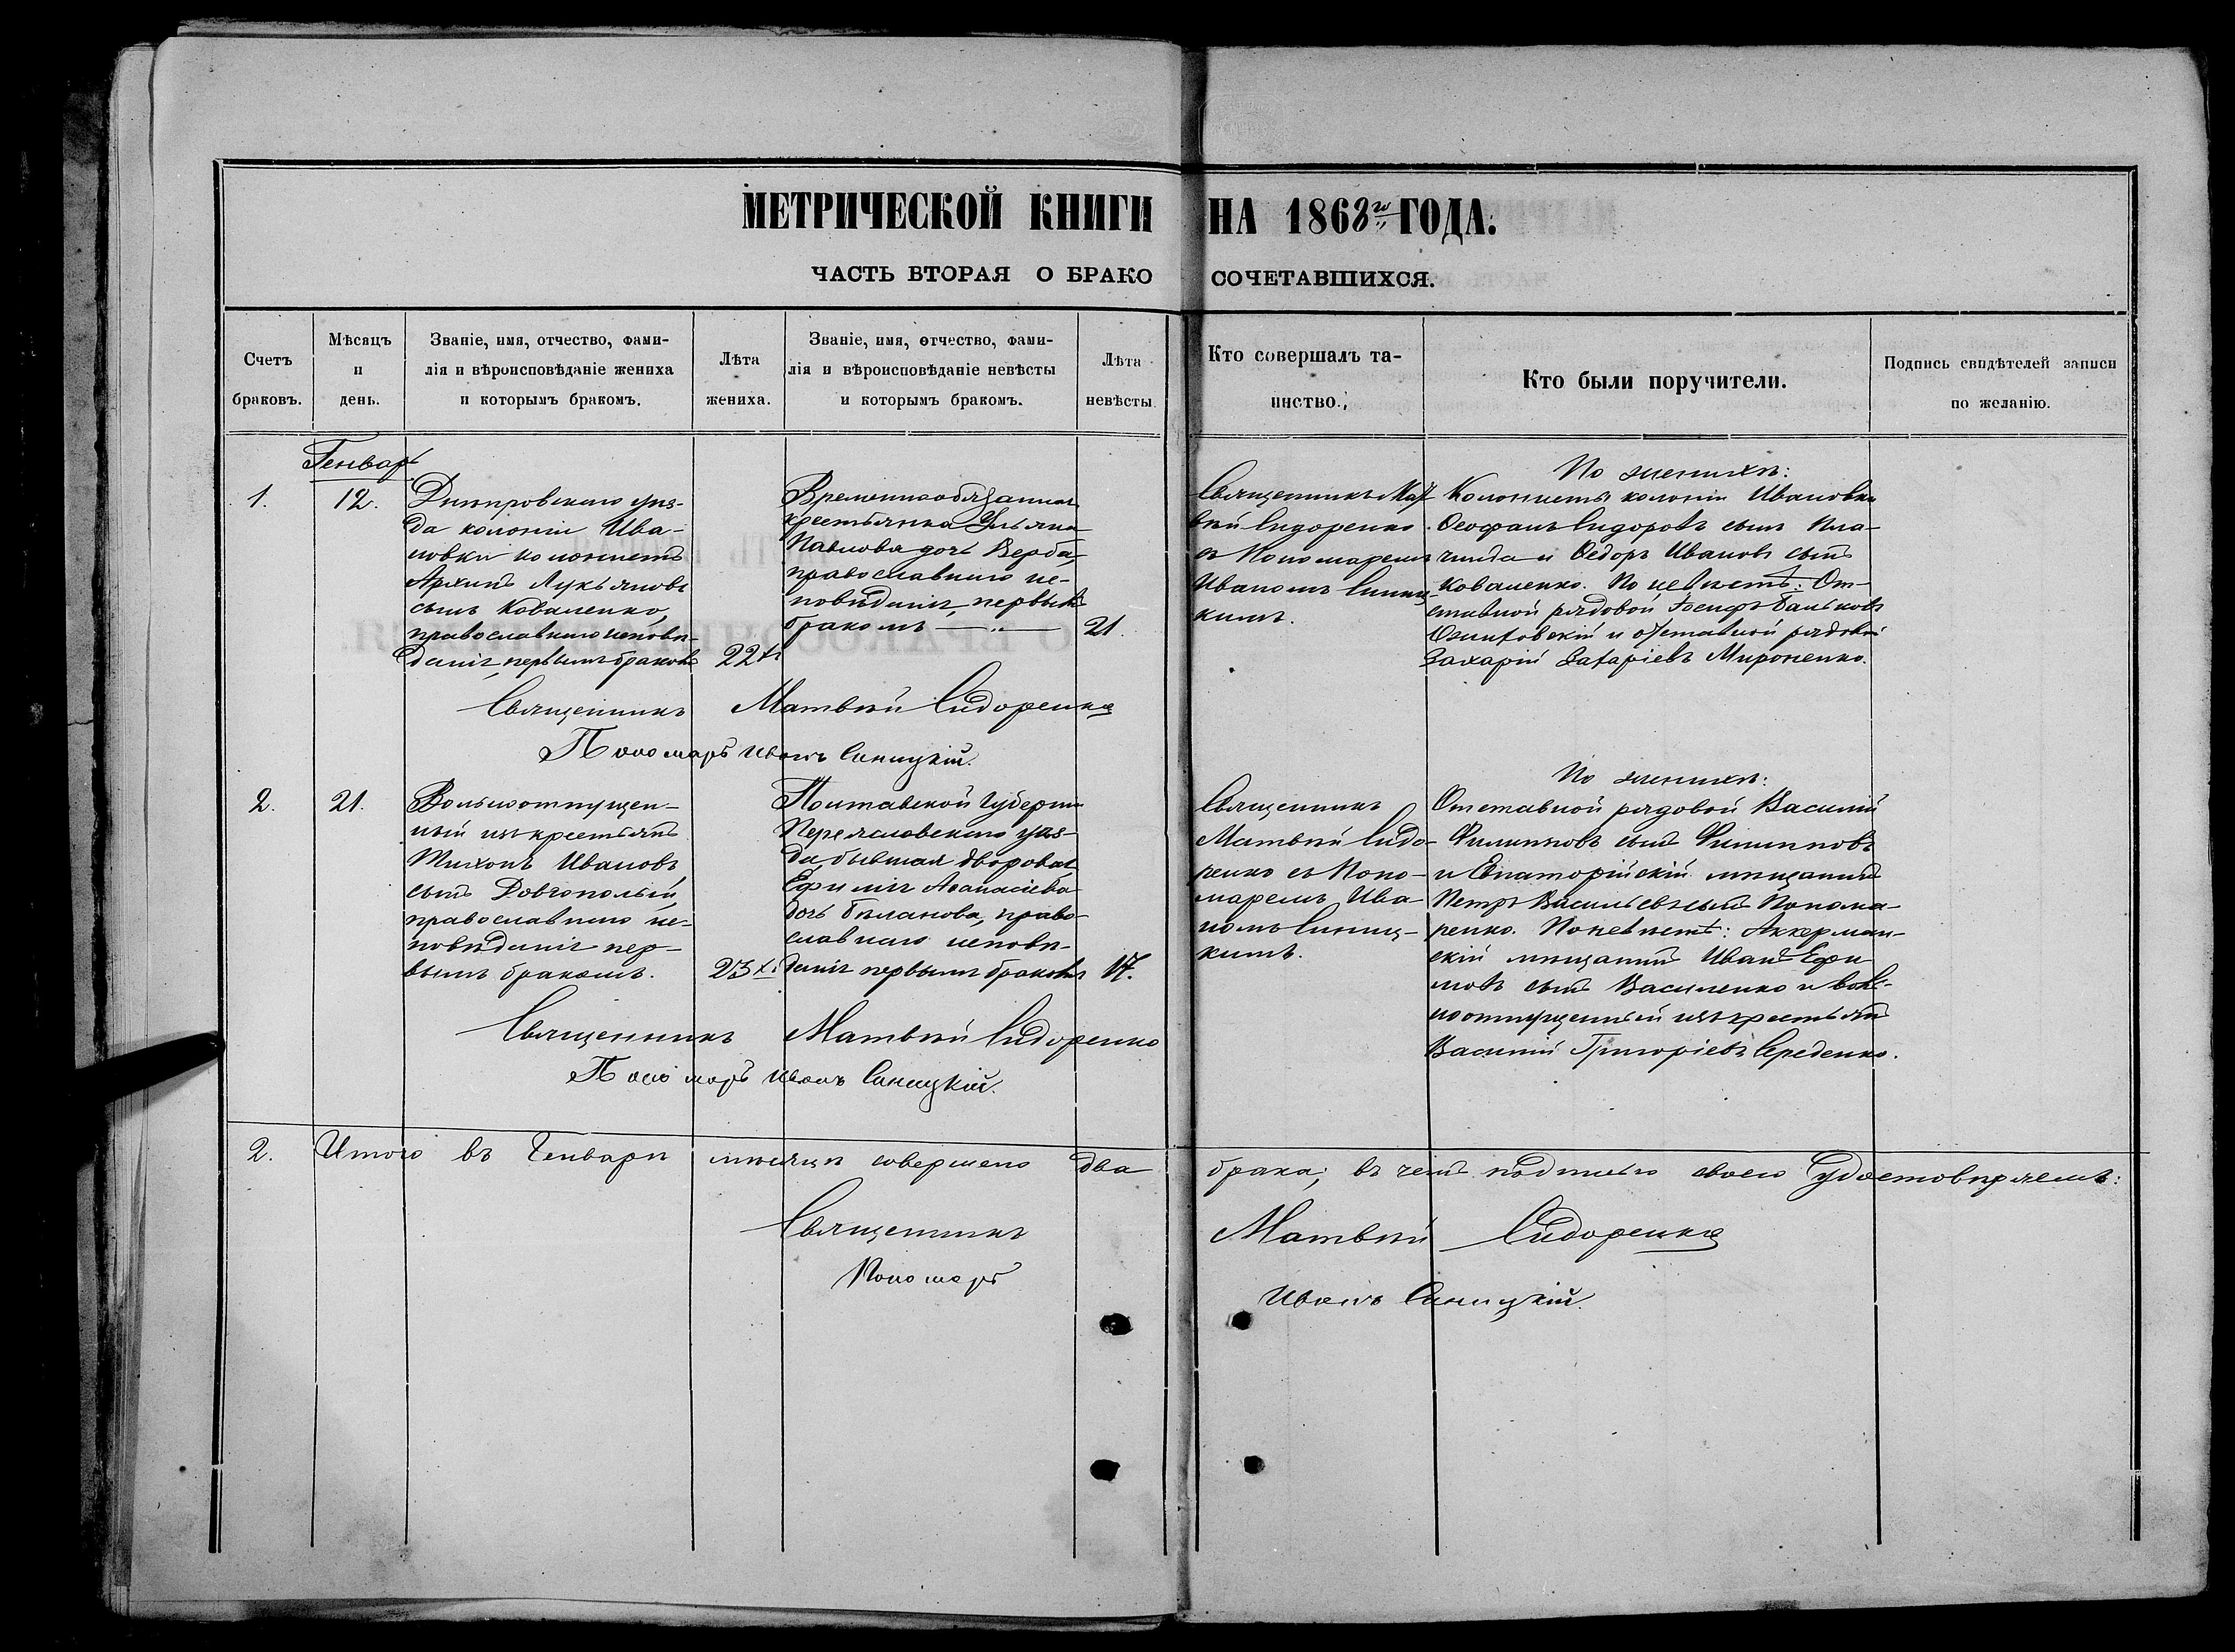 МЕТРИЧЕСКОЙ КНИГИ НА 1868го ГОДА.
ЧАСТЬ ВТОРАЯ О БРАКО СОЧЕТАВШИХСЯ.
Счетъ
браковъ.
Мѣсяцъ
и
день.
Званіе, имя, отчество, фами-
лія и вѣроисповѣданіе жениха
и которымъ бракомъ.
Лѣта
жениха.
Званіе, имя, отчество, фами-
лія и вѣроисповѣданіе невѣсты
и которымъ бракомъ.
Лѣта
невѣсты
Кто совершалъ та-
инство.
Кто были поручители.
Подпись свидѣтелей записи
по желанію.
Генварь
1.
12.
Днѣпровскаго уѣз-
да колоніи Ива-
новки колонистъ
Архипъ Лукьяновъ
сынъ Коваленко,
православнаго исповѣ-
данія, первымъ бракомъ
22
Временнообязанная
крестьянка Ульяна
Павлова дочь Верба,
православнаго ис-
повѣданія, первымъ
бракомъ
21.
Священникъ Мат-
вѣй Сидоренко
съ Пономаремъ
Иваномъ Синиц-
кимъ.
По женихѣ:
Колонисты колоніи Ивановки
Ѳеофанъ Сидоровъ сынъ Пла-
чинда и Ѳедоръ Ивановъ сынъ
Коваленко. По невѣстѣ: От-
ставной рядовой Іосифъ
и отставной рядовой
Захарій Захаріевъ Мироненко.
Священникъ Матвѣй Сидоренко
Пономарь Иванъ Синицкій.
2.
21.
Вольноотпущен-
ный изъ крестьянъ
Тихонъ Ивановъ
сынъ Довгополый,
православнаго ис-
повѣданія пер-
вымъ бракомъ.
23
Полтавской Губерніи
Переяславскаго уѣз-
да бывшая дворовая
Ефимія Аѳанасіева
дочь Биланова, право-
славнаго исповѣ-
данія первымъ бракомъ
17.
Священникъ
Матвѣй Сидо-
ренко съ Поно-
маремъ Ива-
номъ Синиц-
кимъ.
По женихѣ:
Отставной рядовой Василій
Филиповъ сынъ Филиповъ
и Евпаторійскій мѣщанинъ
Петръ Васильевъ сынъ Понома-
ренко. По невѣстѣ: Аккерман-
скій мѣщанинъ Иванъ Ефи
мовъ сынъ Василенко и воль-
ноотпущенный изъ крестьянъ
Василій Григоріевъ Середенко.
Священникъ Матвѣй Сидоренко
Пономарь Иванъ Синицкій.
2. Итого въ Генварѣ мѣсяцѣ совершено два брака; въ чемъ подписью своею удостовѣряемъ:
Священникъ Матвѣй Сидоренко
Пономарь Иванъ Синицкій.